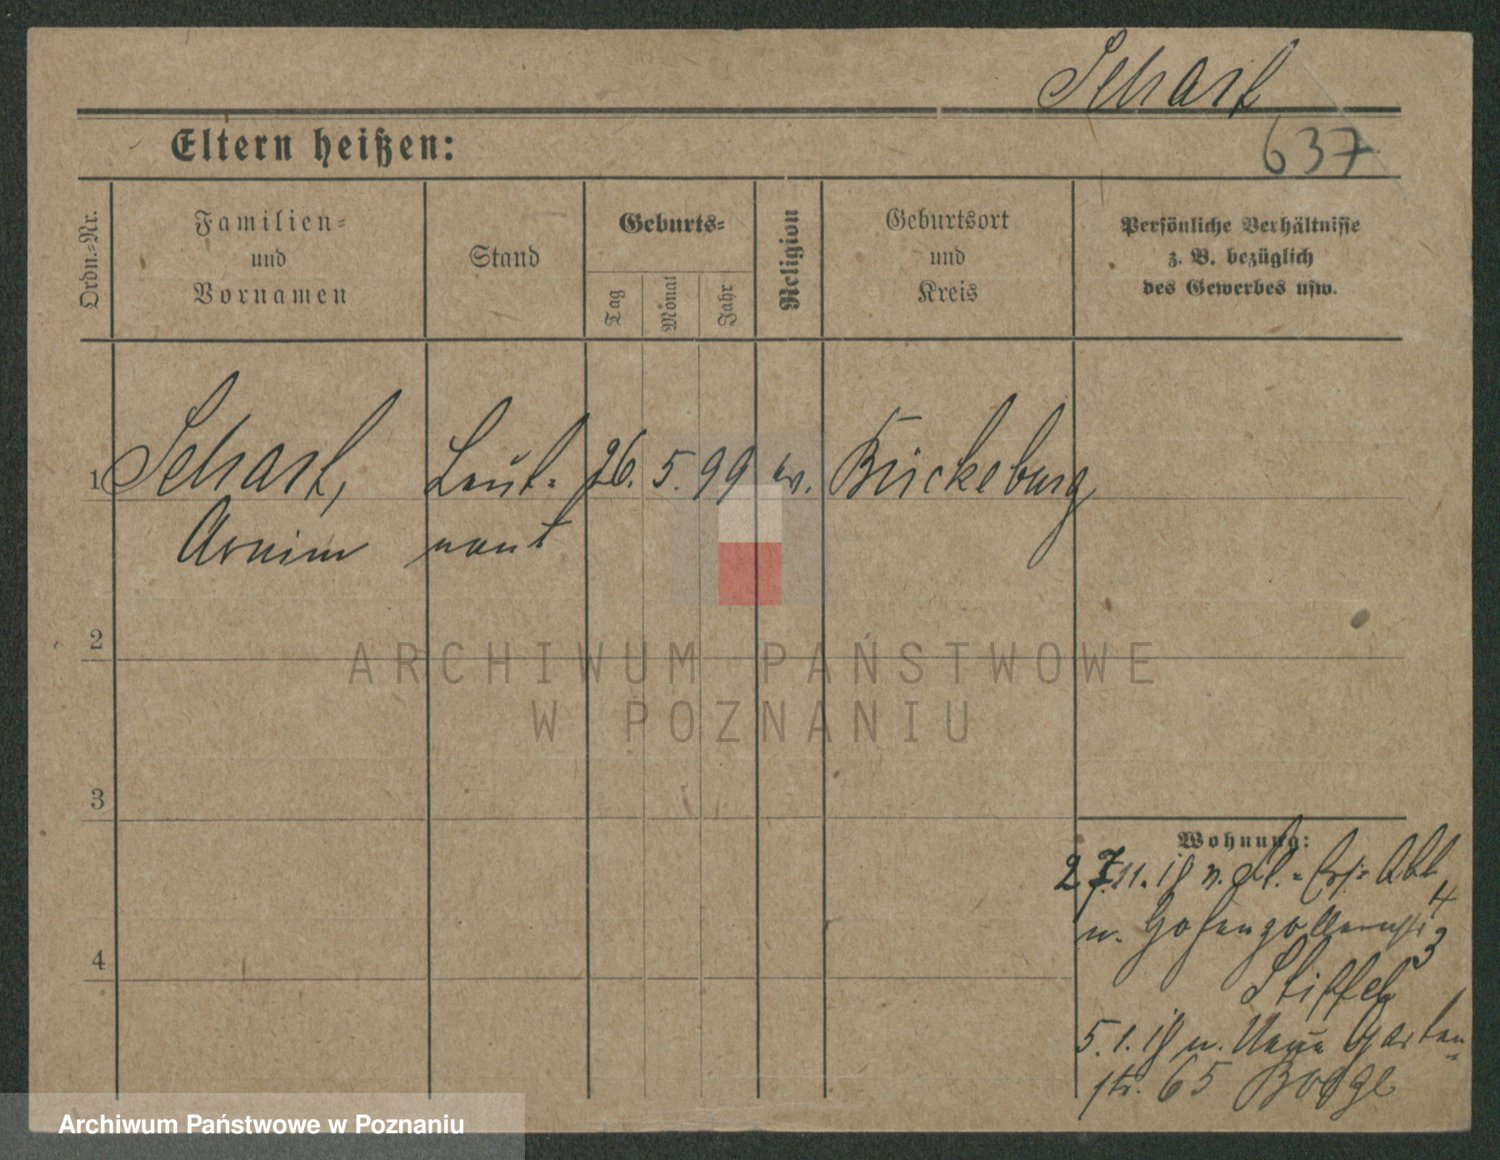 Scharf
637
Eltern heißen:
Ordn.-Nr.
Familien-
und
Vornamen
Stand
Geburts-
Tag
Monat
Jahr
Religion
Geburtsort
und
Kreis
Persönliche Verhältnisse
z. B. bezüglich
des Gewerbes usw.
1 Scharf, Leut- 26. 5. 99 ev. Bückeburg
Arnim nant
2
ARCHIWUM PAŃSTWOWE
W POZNANIU
3
Wohnung:
27.11.18 n. Fl.-Ers. Abt. 4
n.
4
5.1.19 n. Neue Garten-
str. 65
Archiwum Państwowe w Poznaniu